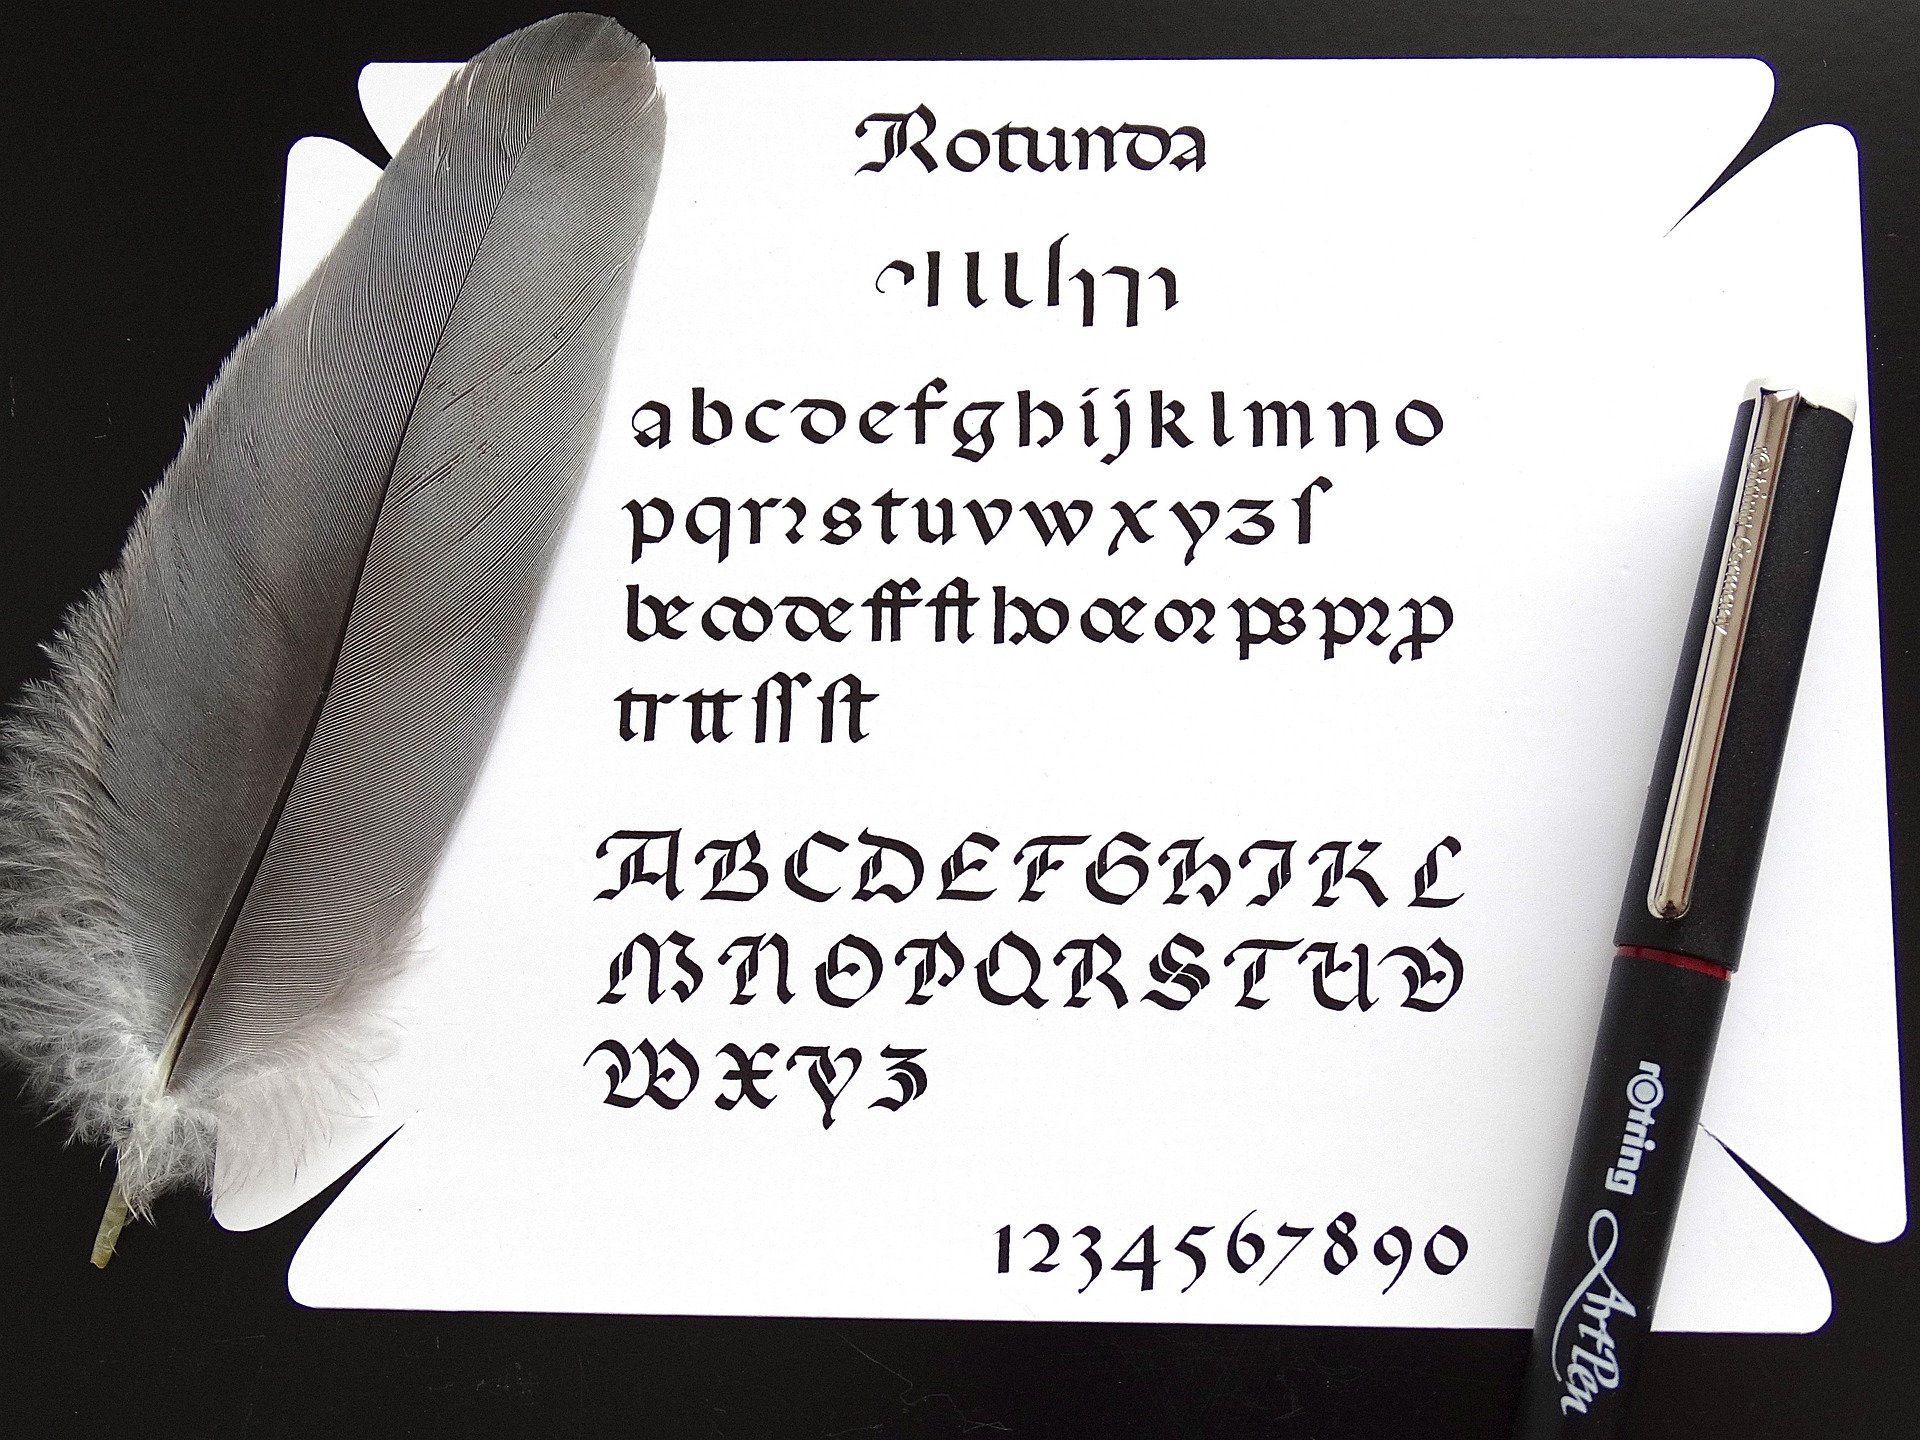 Rotunda
abcdefghijklmno
pqrꝛstuvwxyzſ
be co de ff ft ho œ oꝛ ps pꝛ p
tr tt ſſ ſt
ABCDEFGHIKL
MNOPQRSTUV
WXYZ
1234567890
rotring ArtPen